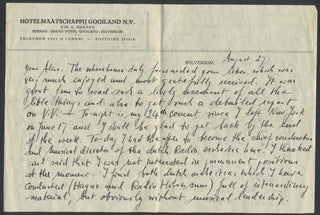 HOTELMAATSCHAPPIJ GOOILAND N.V.
HILVERSUM, August 27
your letter which was
very much enjoyed and most gratefully received. It was
great fun to read such a lively account of all the
little things and also to get such a detailed report
on V.V. — Tonight is my 24th concert since I left New York
on June 17 and I shall be glad to get back by the end
of the week. To-day I had the offer to become the chief conductor
and musical director of the Dutch Radio orchestra here! I thanked
and said that I was not interested in permanent positions
at the moment. I found both dutch orchestras which I have
conducted (Hague and Radio Hilversum) full of extraordinary
material, but obviously without musical leadership.